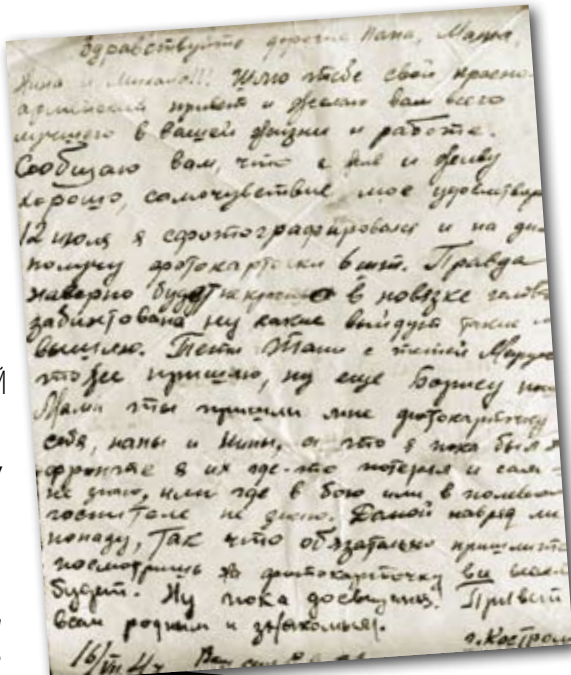 Здравствуйте дорогие папа, Мама,
Нина и Шлю тебе свой красно
армейский привет и желаю вам всего
лучшего в вашей жизни и работе.
Сообщаю вам, что я жив и живу
хорошо, самочувствие мое
12 июля я сфотографировался и на
получу фотокарточки 6 шт. Правда
наверно будет в повязке
забинтована, ну какие выйдут такие
вышлю. Тети Тани с тетей
тоже пришлю, ну еще Борису
Мама ты пришли мне фотокарточку
себя, папы и Нины, а то я пока был
фронте я их где-то потерял и сам
не знаю, или где в бою или в
госпитале не знаю. Домой навряд ли
попаду, так что обязательно пришлите
посмотришь на фотокарточку
будет. Ну пока досвиданья. Привет
всем родным и знакомым.
г. Костром
16/VII Ваш сын
Й